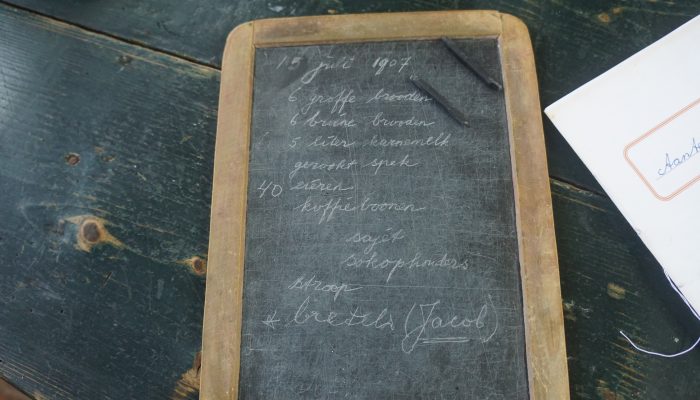 15 juli 1907
6 groffe brooden
6 bruine brooden
5 liter karnemelk
gerookt spek
40 eieren
koffieboonen
sajet
sokophouders
stroop
* bretels (Jacob)
Aant